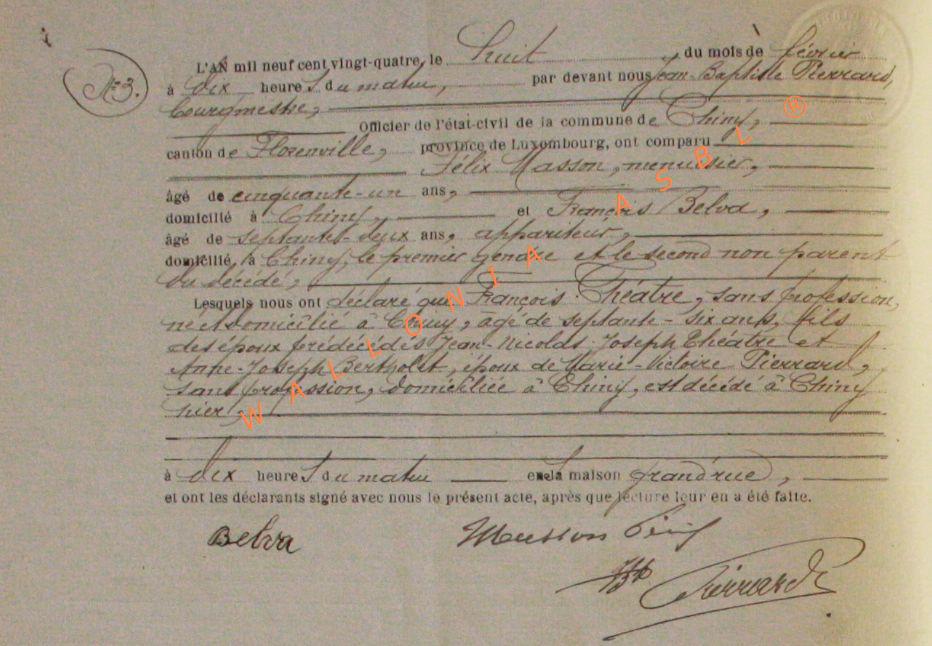 N° 3.
L'AN mil neuf cent vingt-quatre, le huit, du mois de février
à dix heures du matin, par devant nous Jean-Baptiste Pierrard,
bourgmestre,
Officier de l'état-civil de la commune de Chiny,
canton de Florenville, province de Luxembourg, ont comparu
Félix Masson, menuisier,
âgé de cinquante-un ans,
domicilié à Chiny, et François Belva,
âgé de septante-deux ans, appariteur,
domicilié à Chiny, le premier gendre et le second non parent
du décédé,
Lesquels nous ont déclaré que François Théâtre, sans profession,
né et domicilié à Chiny, âgé de septante-six ans, fils
des époux prédécédés Jean-Nicolas-Joseph Théâtre et
Anne-Joseph Bertholet, époux de Marie-Victoire Pierrard,
sans profession, domiciliée à Chiny, est décédé à Chiny
hier,
à dix heures du matin en la maison grand'rue,
et ont les déclarants signé avec nous le présent acte, après que lecture leur en a été faite.
Belva Masson Félix
JB Pierrard
WALLONIA ASBL ®